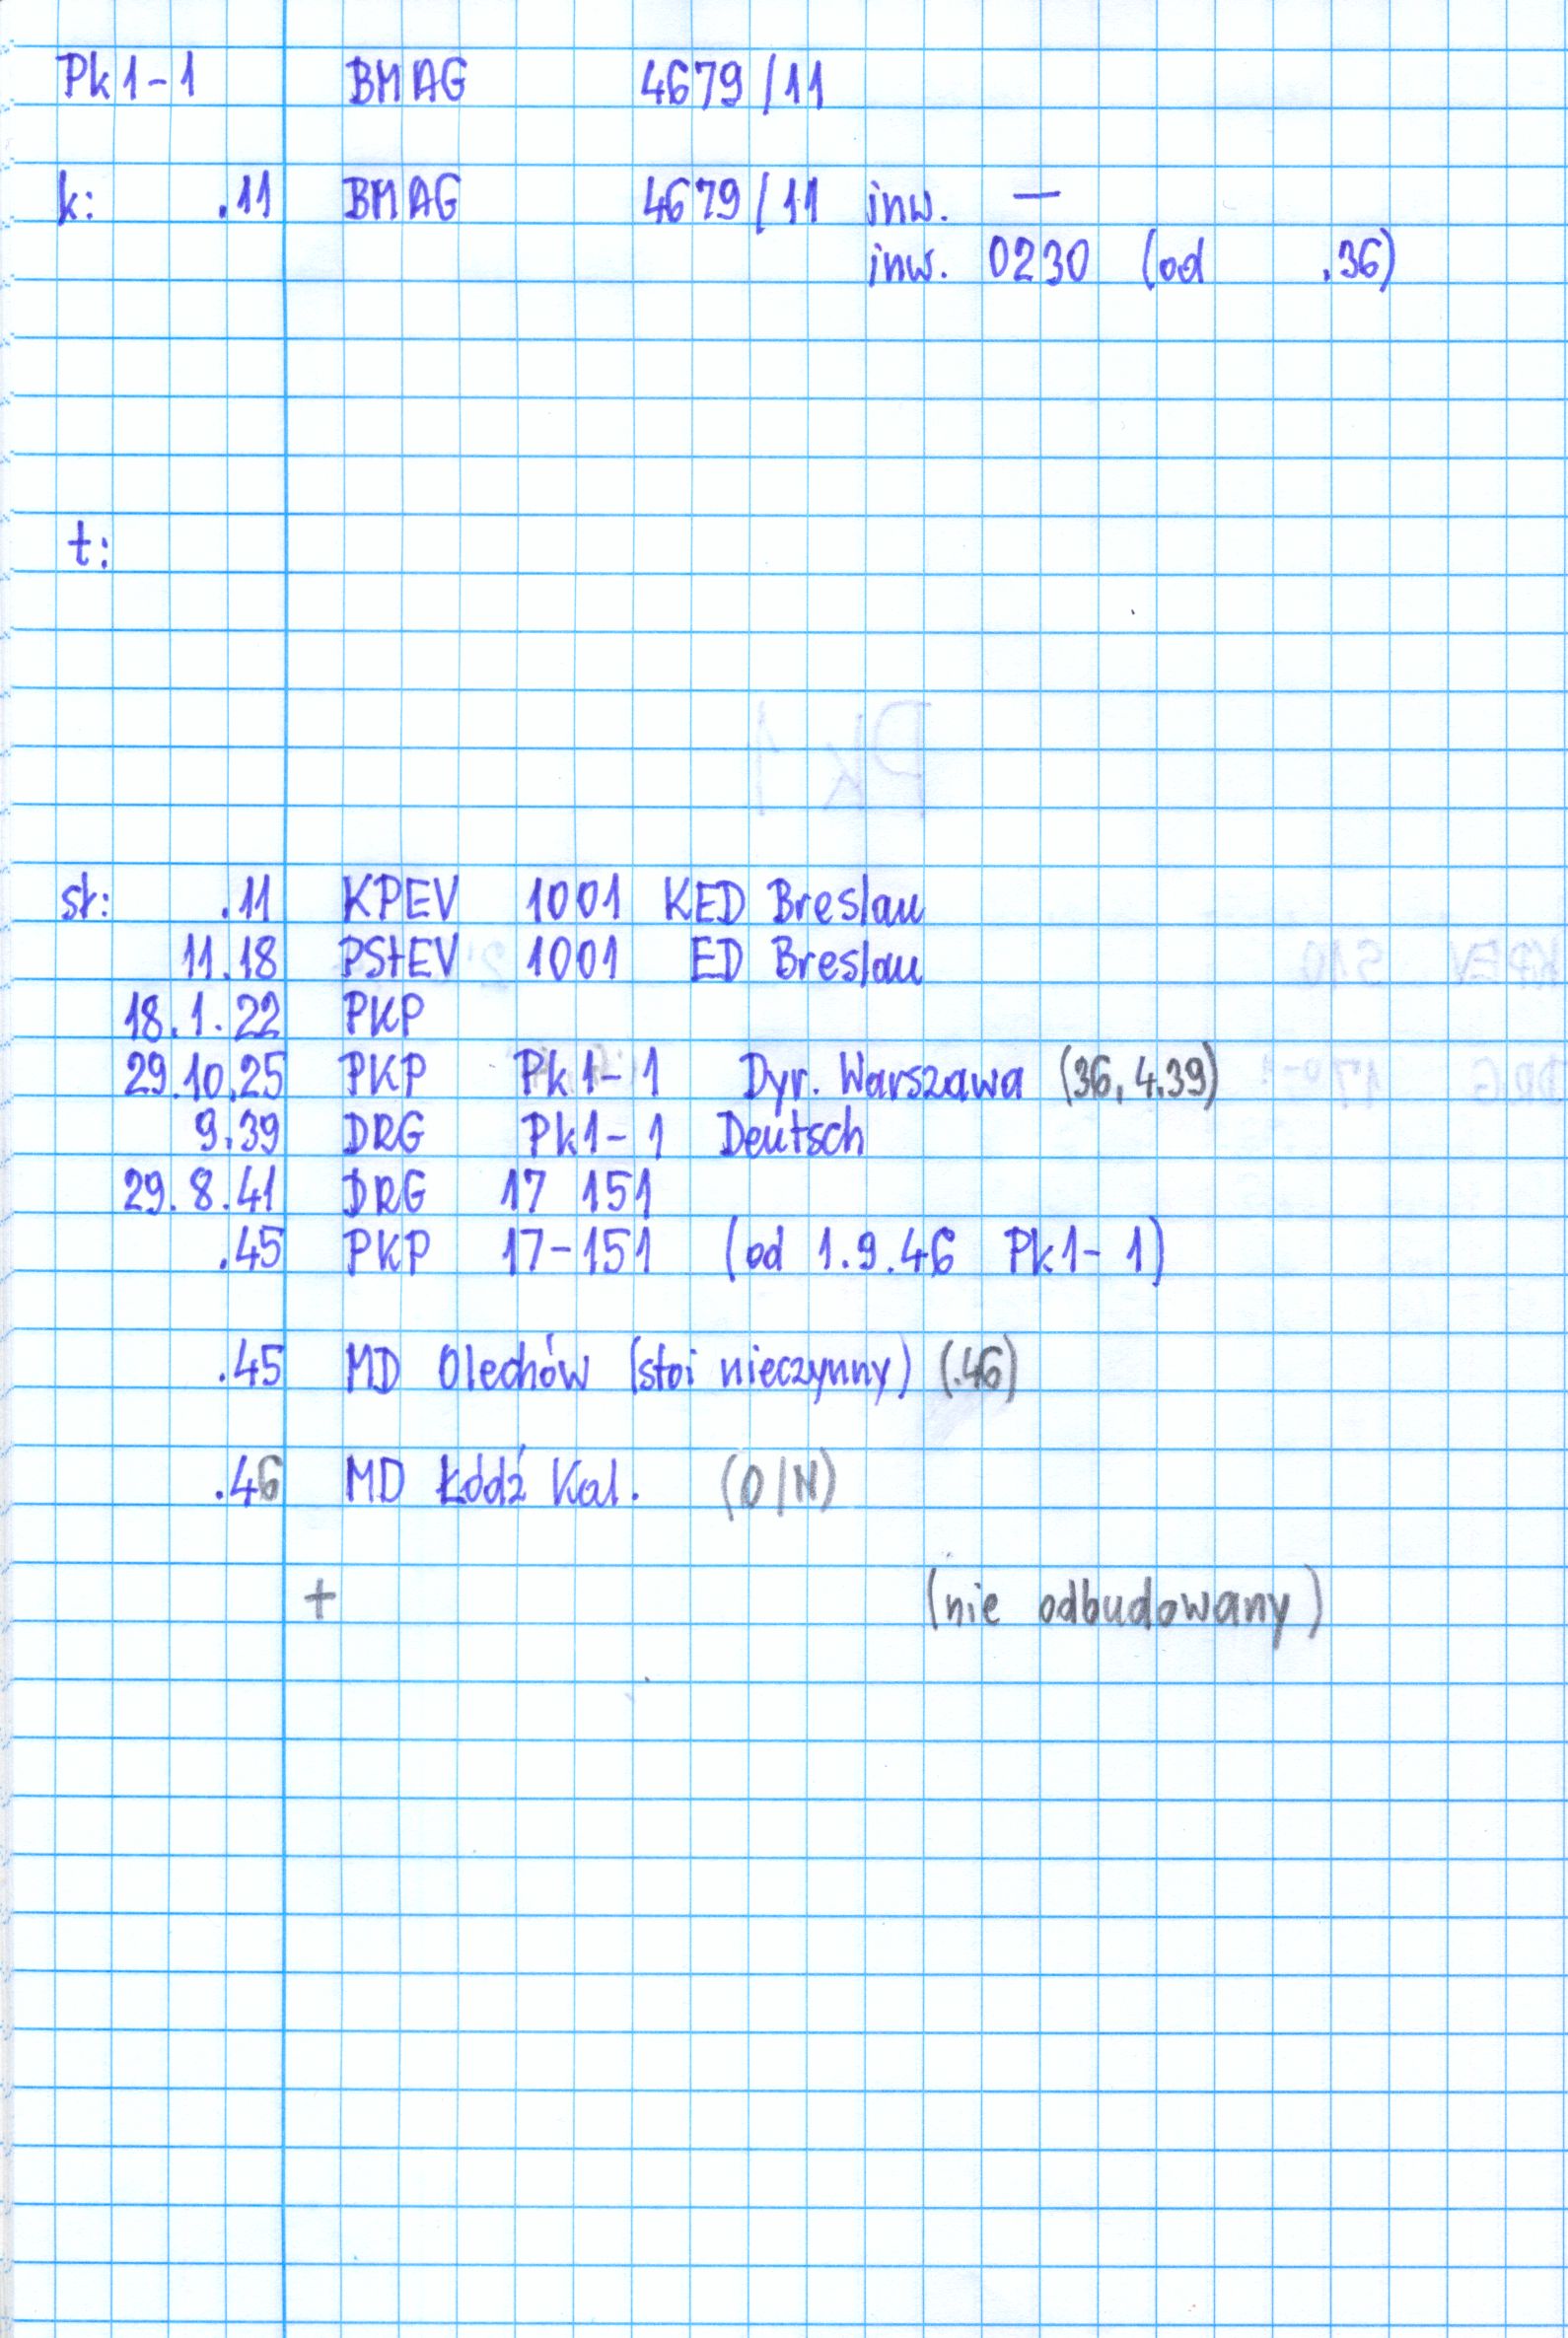 Pk1-1 BMAG 4679/11
k: .11 BMAG 4679/11 inw. —
inw. 0230 (od .36)
t:
st: .11 KPEV 1001 KED Breslau
11.18 PStEV 1001 ED Breslau
18.1.22 PKP
29.10.25 PKP Pk1-1 Dyr. Warszawa (36, 4.39)
9.39 DRG Pk1-1 Deutsch
29.8.41 DRG 17 151
.45 PKP 17-151 (od 1.9.46 Pk1-1)
.45 MD Olechów (stoi nieczynny) (.46)
.46 MD Łódź Kal. (O/N)
+ (nie odbudowany)